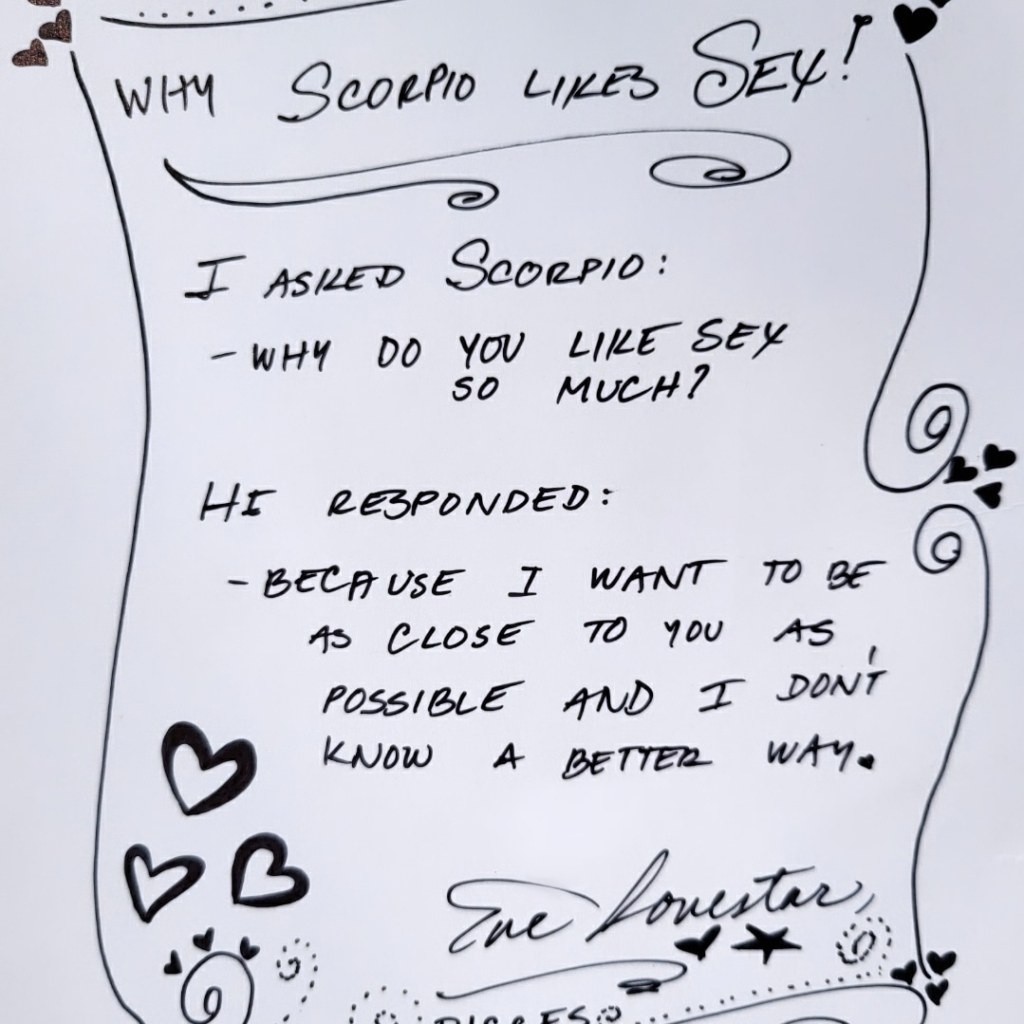 WHY SCORPIO LIKES SEX!
I ASKED SCORPIO:
- WHY DO YOU LIKE SEX
SO MUCH?
HE RESPONDED:
- BECAUSE I WANT TO BE
AS CLOSE TO YOU AS
POSSIBLE AND I DON'T
KNOW A BETTER WAY.
Eve Lovestar,